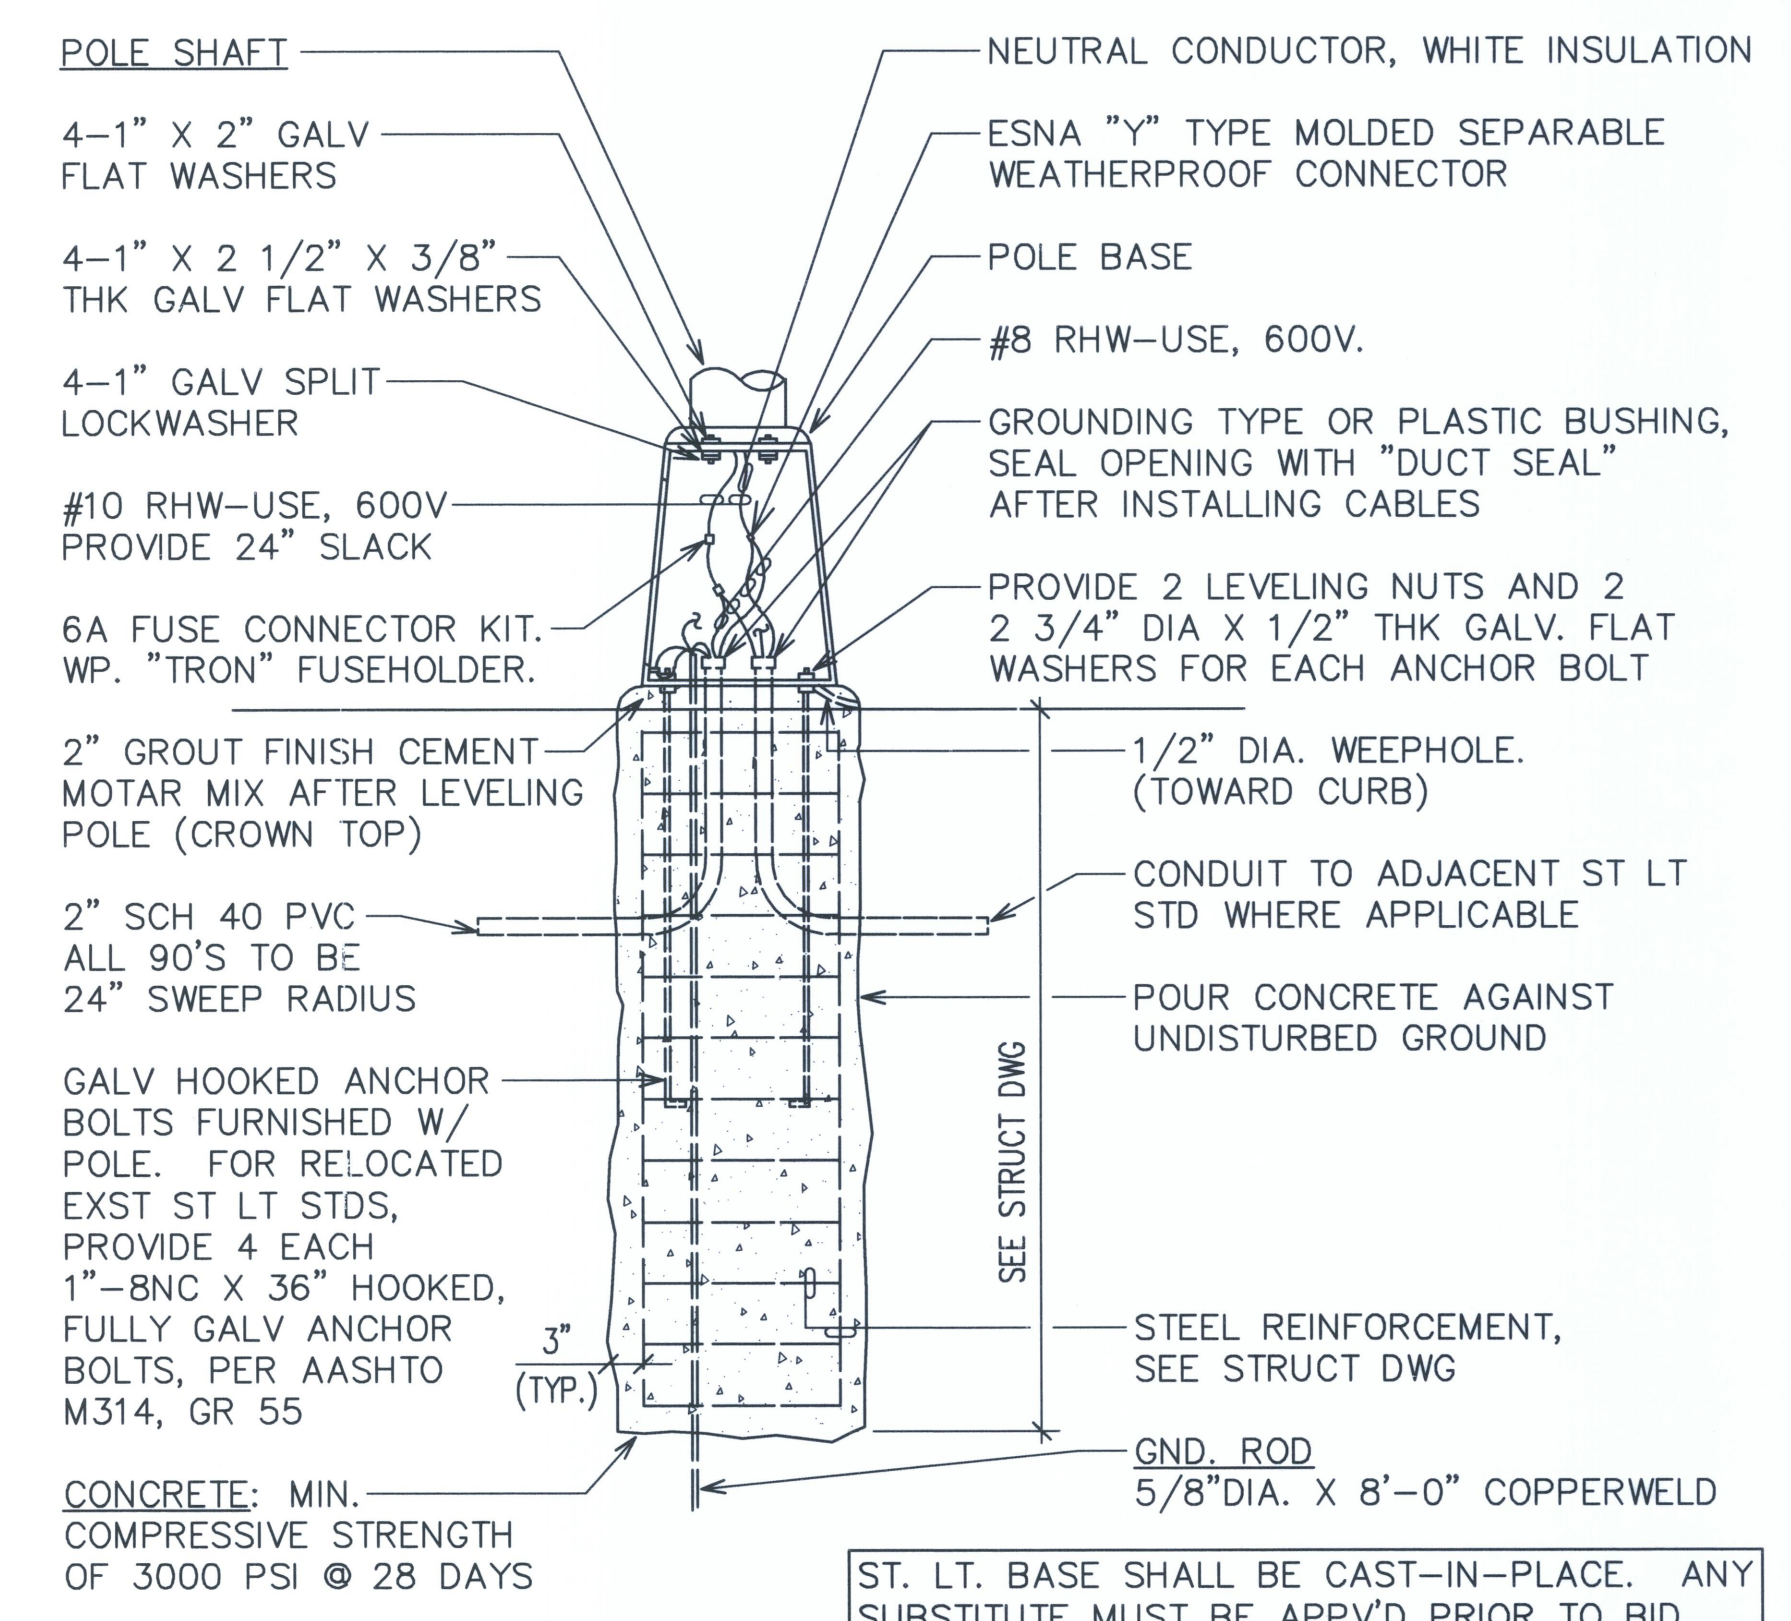 POLE SHAFT
4-1" X 2" GALV
FLAT WASHERS
4-1" X 2 1/2" X 3/8"
THK GALV FLAT WASHERS
4-1" GALV SPLIT
LOCKWASHER
#10 RHW-USE, 600V
PROVIDE 24" SLACK
6A FUSE CONNECTOR KIT.
WP. "TRON" FUSEHOLDER.
2" GROUT FINISH CEMENT
MOTAR MIX AFTER LEVELING
POLE (CROWN TOP)
2" SCH 40 PVC
ALL 90'S TO BE
24" SWEEP RADIUS
GALV HOOKED ANCHOR
BOLTS FURNISHED W/
POLE. FOR RELOCATED
EXST ST LT STDS,
PROVIDE 4 EACH
1"-8NC X 36" HOOKED,
FULLY GALV ANCHOR
BOLTS, PER AASHTO
M314, GR 55
CONCRETE: MIN.
COMPRESSIVE STRENGTH
OF 3000 PSI @ 28 DAYS
3"
(TYP.)
NEUTRAL CONDUCTOR, WHITE INSULATION
ESNA "Y" TYPE MOLDED SEPARABLE
WEATHERPROOF CONNECTOR
POLE BASE
#8 RHW-USE, 600V.
GROUNDING TYPE OR PLASTIC BUSHING,
SEAL OPENING WITH "DUCT SEAL"
AFTER INSTALLING CABLES
PROVIDE 2 LEVELING NUTS AND 2
2 3/4" DIA X 1/2" THK GALV. FLAT
WASHERS FOR EACH ANCHOR BOLT
1/2" DIA. WEEPHOLE.
(TOWARD CURB)
CONDUIT TO ADJACENT ST LT
STD WHERE APPLICABLE
POUR CONCRETE AGAINST
UNDISTURBED GROUND
SEE STRUCT DWG
STEEL REINFORCEMENT,
SEE STRUCT DWG
GND. ROD
5/8"DIA. X 8'-0" COPPERWELD
ST. LT. BASE SHALL BE CAST-IN-PLACE. ANY
SUBSTITUTE MUST BE APPV'D PRIOR TO BID